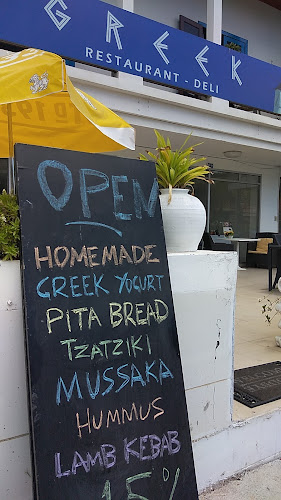 GREEK
RESTAURANT - DELI
OPEN
HOMEMADE
GREEK YOGURT
PITA BREAD
TZATZIKI
MUSSAKA
HUMMUS
LAMB KEBAB
15%